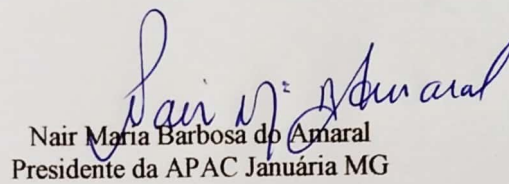 Nair Mª Amaral
Nair Maria Barbosa do Amaral
Presidente da APAC Januária MG